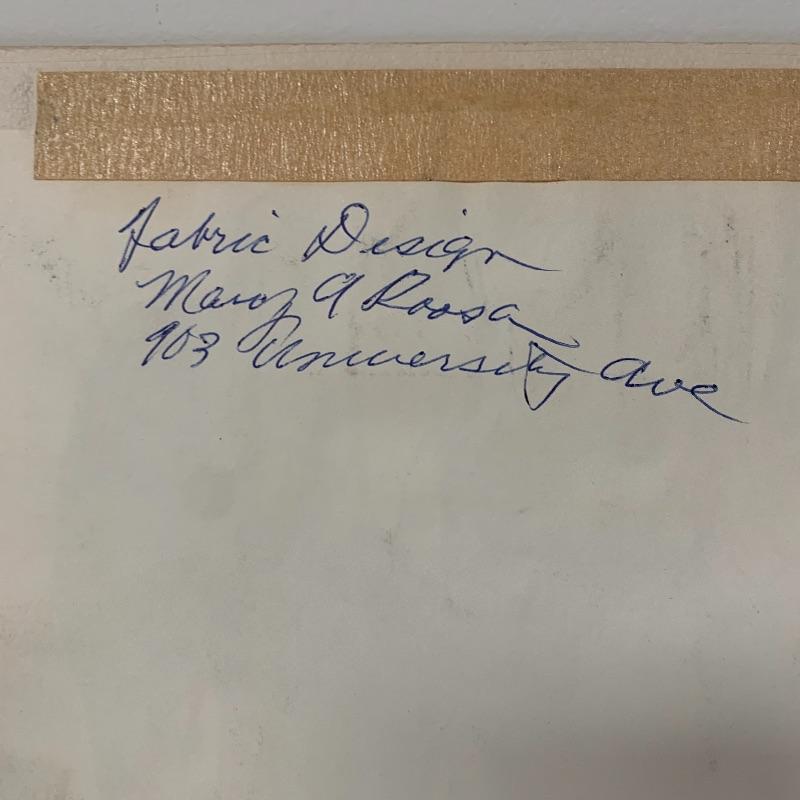 Fabric Design
Mary A Roosa
903 University Ave